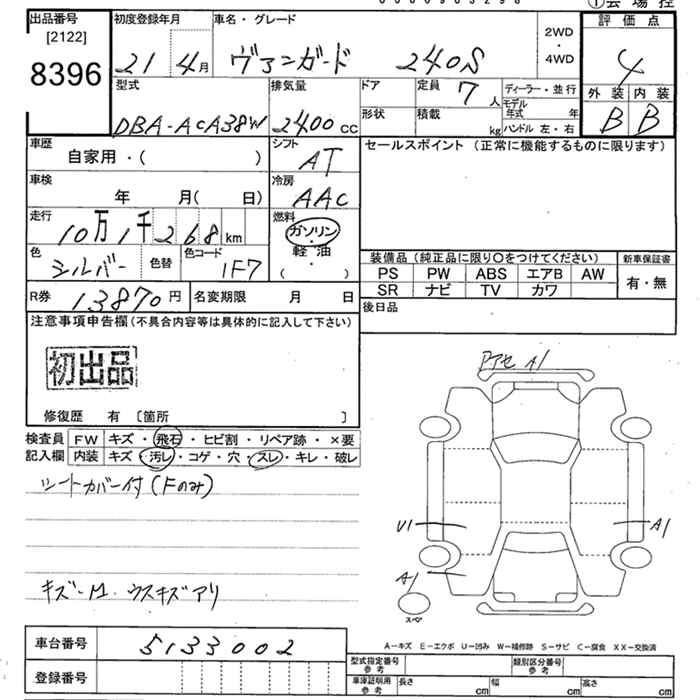 ①会場控
出品番号 初度登録年月 車名・グレード 2WD 評価点
[2122] 21 4月 ヴァンガード 240S ・ 4
8396 4WD
型式 排気量 ドア 定員 7人 ディーラー・並行 外装 内装
DBA-ACA38W 2400cc 形状 積載 kg モデル年式 年 B B
ハンドル 左・右
車歴 シフト セールスポイント (正常に機能するものに限ります)
自家用・( ) AT
車検 冷房
年 月( 日) AAC
走行 燃料
10万1千268km ガソリン
色 色替 色コード ・軽油
シルバー 1F7 ( )
装備品(純正品に限り〇をつけてください) 新車保証書
PS PW ABS エアB AW 有・無
SR ナビ TV カワ
R券 13870円 名変期限 月 日 後日品
注意事項申告欄(不具合内容等は具体的に記入して下さい)
初出品
修復歴 有 〔箇所 〕
検査員 FW キズ・飛石・ヒビ割・リペア跡・×要
記入欄 内装 キズ・汚レ・コゲ・穴・スレ・キレ・破レ
シートカバー付(Fのみ)
キズ-M ウスキズアリ
A1
U1 A1
A1
スペア
A-キズ E-エクボ U-凹み W-補修跡 S-サビ C-腐食 XX-交換済
車台番号 5133002
登録番号
型式指定番号 参考 類別区分番号 参考
車庫証明用 参考 長さ cm 幅 cm 高さ cm